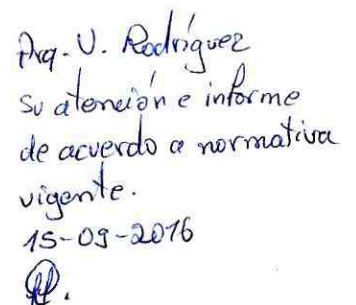 Arq. V. Rodríguez
su atención e informe
de acuerdo a normativa
vigente.
15-09-2016